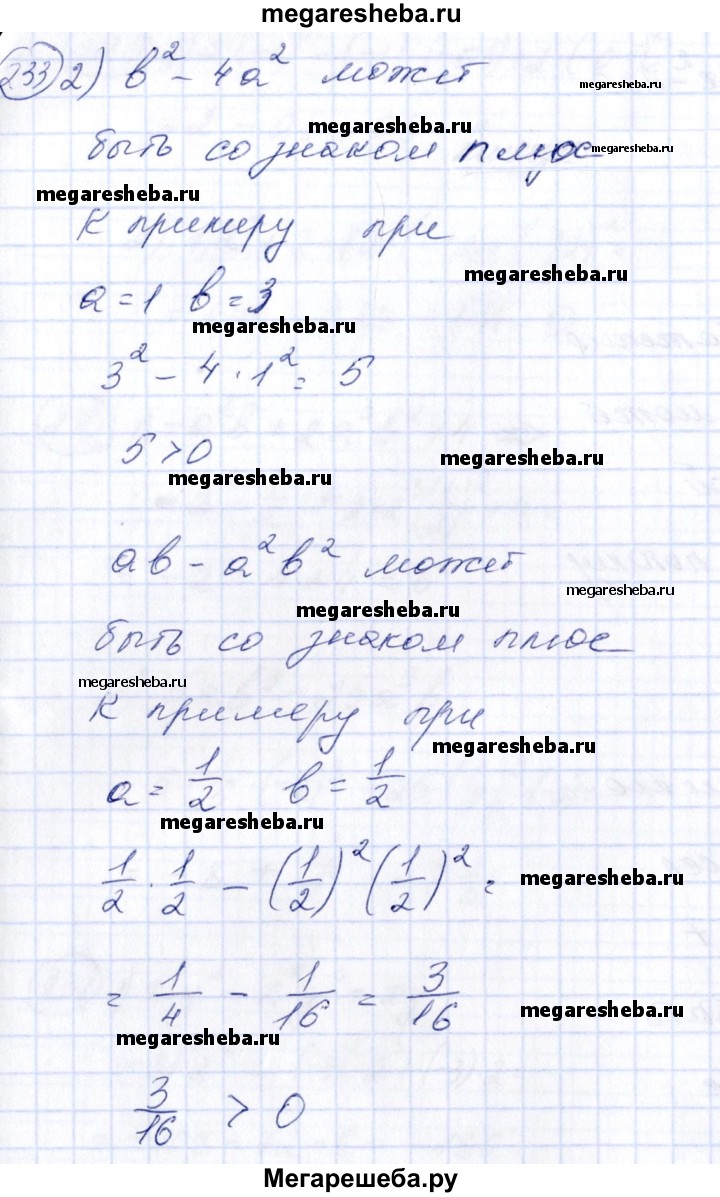 megaresheba.ru
233 2) b² - 4a² может
megaresheba.ru
быть со знаком плюс
megaresheba.ru
megaresheba.ru
megaresheba.ru
К примеру при
megaresheba.ru
a = 1 b = 3
megaresheba.ru
3² - 4 · 1² = 5
5 > 0
megaresheba.ru
megaresheba.ru
ab - a²b² может
megaresheba.ru
megaresheba.ru
быть со знаком плюс
megaresheba.ru
К примеру при
megaresheba.ru
a = 1/2 b = 1/2
megaresheba.ru
1/2 · 1/2 - (1/2)² (1/2)² =
megaresheba.ru
= 1/4 - 1/16 = 3/16
megaresheba.ru
megaresheba.ru
3/16 > 0
Мегарешеба.ру